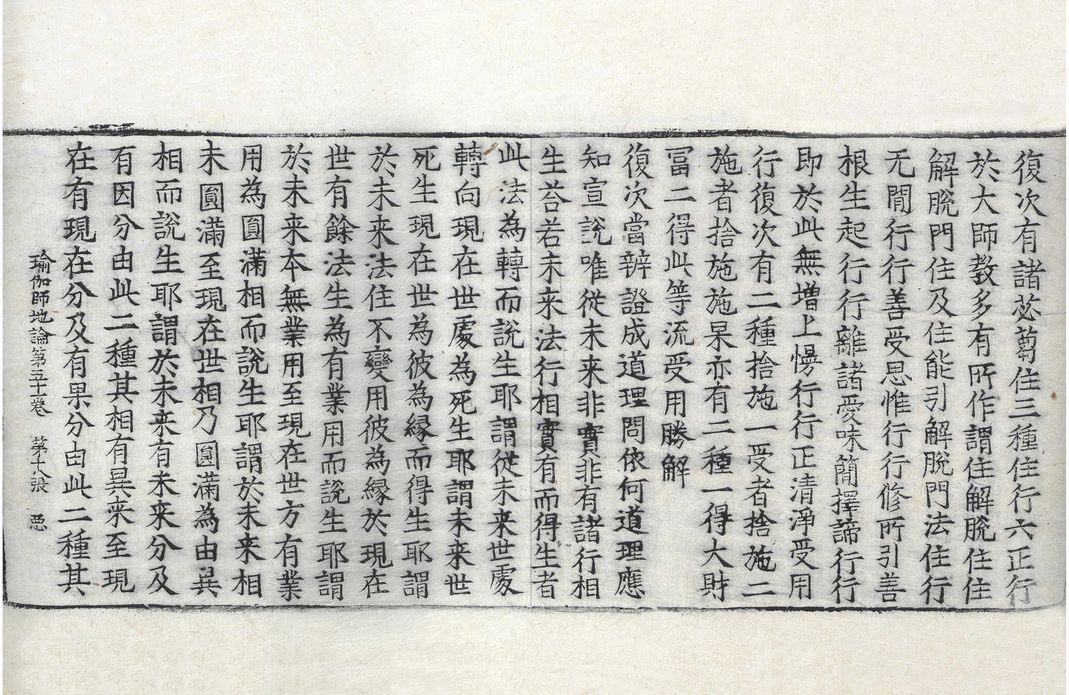 復次有諸苾芻住三種住行六正行
於大師教多有所作謂住解脫住住
解脫門住及住能引解脫門法住行
无閒行行善受思惟行行修所引善
根生起行行離諸愛味簡擇諦行行
即於此無增上慢行行正清淨受用
行復次有二種捨施一受者捨施二
施者捨施施果亦有二種一得大財
冨二得此等流受用勝解
復次當辨證成道理問依何道理應
知宣說唯從未来非實非有諸行相
生荅若未来法行相實有而得生者
此法為轉而說生耶謂從未来世處
轉向現在世處為死生耶謂未来世
死生現在世為彼為緣而得生耶謂
於未来法住不變用彼為緣於現在
世有餘法生為有業用而說生耶謂
於未来本無業用至現在世方有業
用為圓滿相而說生耶謂於未来相
未圓滿至現在世相乃圓滿為由異
相而說生耶謂於未来有未来分及
有因分由此二種其相有異来至現
在有現在分及有果分由此二種其
瑜伽師地論第五十一卷 第十八張 惡